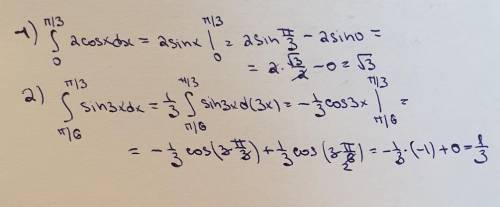 1) ∫₀^(π/3) 2cosxdx = 2sinx |₀^(π/3) = 2sin π/3 − 2sin0 =
= 2·√3/2 − 0 = √3
2) ∫_(π/6)^(π/3) sin3xdx = 1/3 ∫_(π/6)^(π/3) sin3xd(3x) = −1/3 cos3x |_(π/6)^(π/3) =
= −1/3 cos(3·π/3) + 1/3 cos(3·π/6₂) = −1/3·(−1) + 0 = 1/3